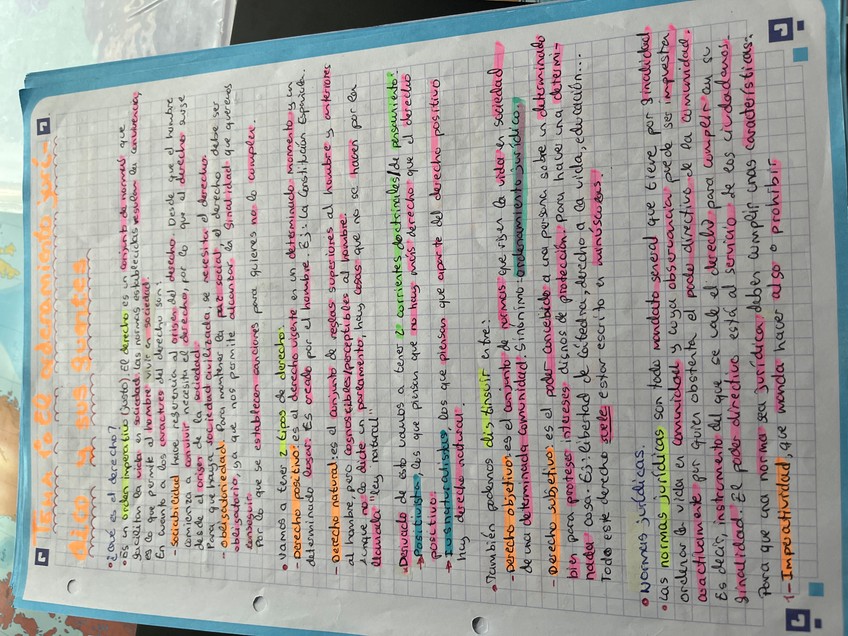 TEMA 1: El ordenamiento jurí-
dico y sus fuentes
• ¿Qué es el derecho?
• Es un orden imperativo (justo). El derecho es un conjunto de normas que
facilitan la vida en sociedad. Las normas establecidas regulan la convivencia,
es lo que permite al hombre vivir en sociedad.
En cuanto a los caracteres del derecho son:
- Sociabilidad: hace referencia al origen del derecho. Desde que el hombre
comienza a convivir necesita el derecho, por lo que el derecho surge
desde el origen de la sociedad.
Para que haya sociedad civilizada, se necesita el derecho.
- Obligatoriedad: Para mantener la paz social, el derecho debe ser
obligatorio, ya que nos permite alcanzar la finalidad que queremos
conseguir.
Por lo que se establecen sanciones para quienes no lo cumplen.
• Vamos a tener 2 tipos de derecho:
- Derecho positivo: es el derecho vigente en un determinado momento y un
determinado lugar. Es creado por el hombre. Ej: La Constitución Española.
- Derecho natural: es el conjunto de reglas superiores al hombre y anteriores
al hombre, pero cognoscibles/perceptibles al hombre.
Aunque no lo dicte un parlamento, hay cosas que no se hacen por la
llamada "ley natural"
• Derivado de esto vamos a tener 2 corrientes doctrinales/de pensamiento:
→ Positivistas, los que piensan que no hay más derecho que el derecho
positivo.
→ Iusnaturalistas, los que piensan que aparte del derecho positivo
hay derecho natural.
• También podemos distinguir entre:
- Derecho objetivo: es el conjunto de normas que rigen la vida en sociedad
de una determinada comunidad. Sinónimo: ordenamiento jurídico.
- Derecho subjetivo: es el poder concebido a una persona sobre un determinado
bien para proteger intereses dignos de protección. Para hacer una determi-
nada cosa. Ej: libertad de cátedra, derecho a la vida, educación...
Todo este derecho debe estar escrito en minúsculas.
• Normas jurídicas.
• Las normas jurídicas son todo mandato general que tiene por finalidad
ordenar la vida en comunidad y cuya observancia puede ser impuesta
coactivamente por quien obstenta el poder directivo de la comunidad.
Es decir, instrumento del que se vale el derecho para cumplir en su
finalidad. El poder directivo está al servicio de los ciudadanos.
Para que una norma sea jurídica deben cumplir unas características:
1- Imperatividad, que manda hacer algo o prohibir